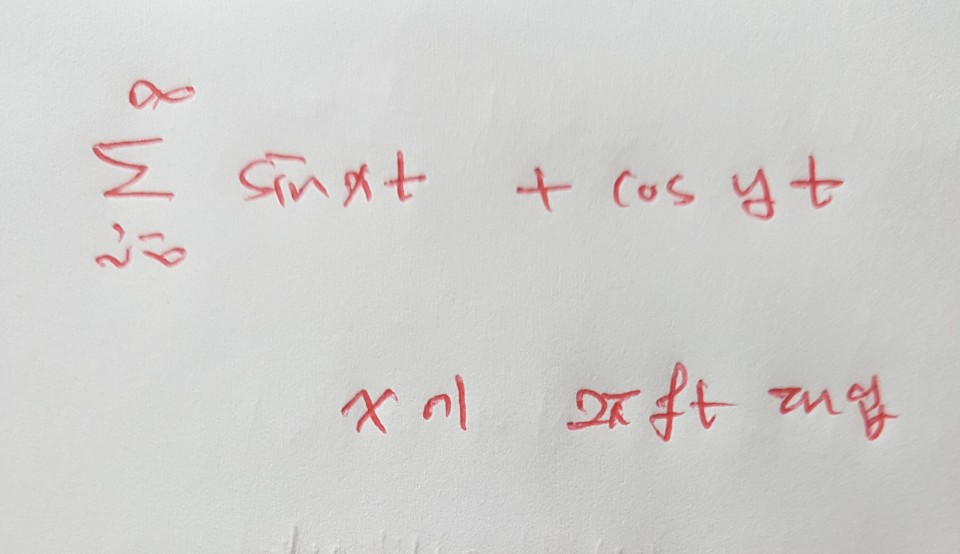 ∞
Σ sin xt + cos yt
i=0
x에 2πft 대입